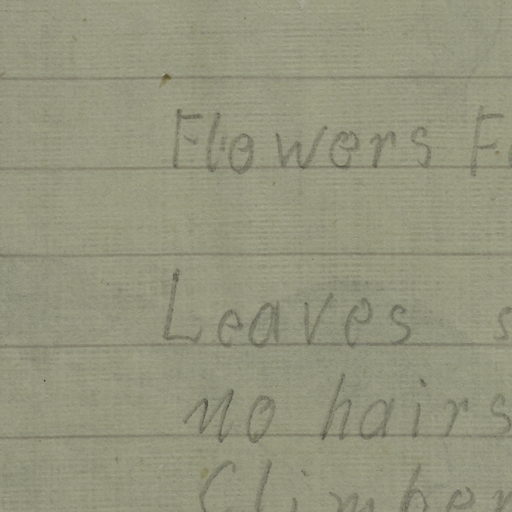 Flowers F
Leaves s
no hairs
Climber